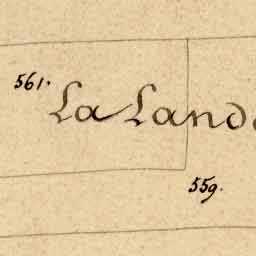 561.
La Land
559.